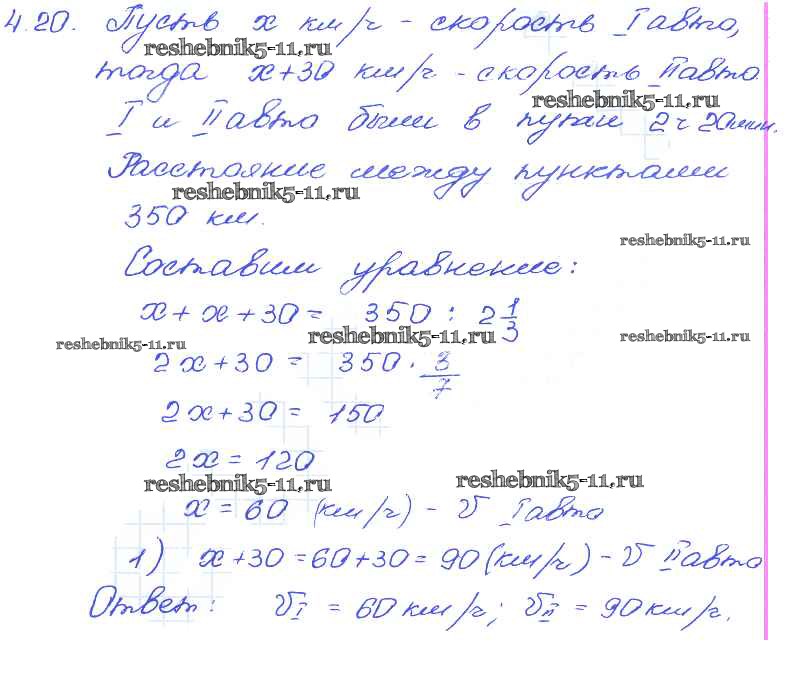 4.20. Пусть x км/ч - скорость I авто,
reshebnik5-11.ru
тогда x+30 км/ч - скорость II авто
reshebnik5-11.ru
I и II авто были в пути 2ч 20мин.
Расстояние между пунктами
reshebnik5-11.ru
350 км.
reshebnik5-11.ru
Составим уравнение:
x + x + 30 = 350 : 2 1/3
reshebnik5-11.ru
reshebnik5-11.ru
reshebnik5-11.ru
2x+30 = 350 · 3/7
2x+30 = 150
2x = 120
reshebnik5-11.ru
reshebnik5-11.ru
x = 60 (км/ч) - v I авто
1) x+30 = 60+30 = 90 (км/ч) - v II авто
Ответ: vI = 60 км/ч; vII = 90 км/ч.